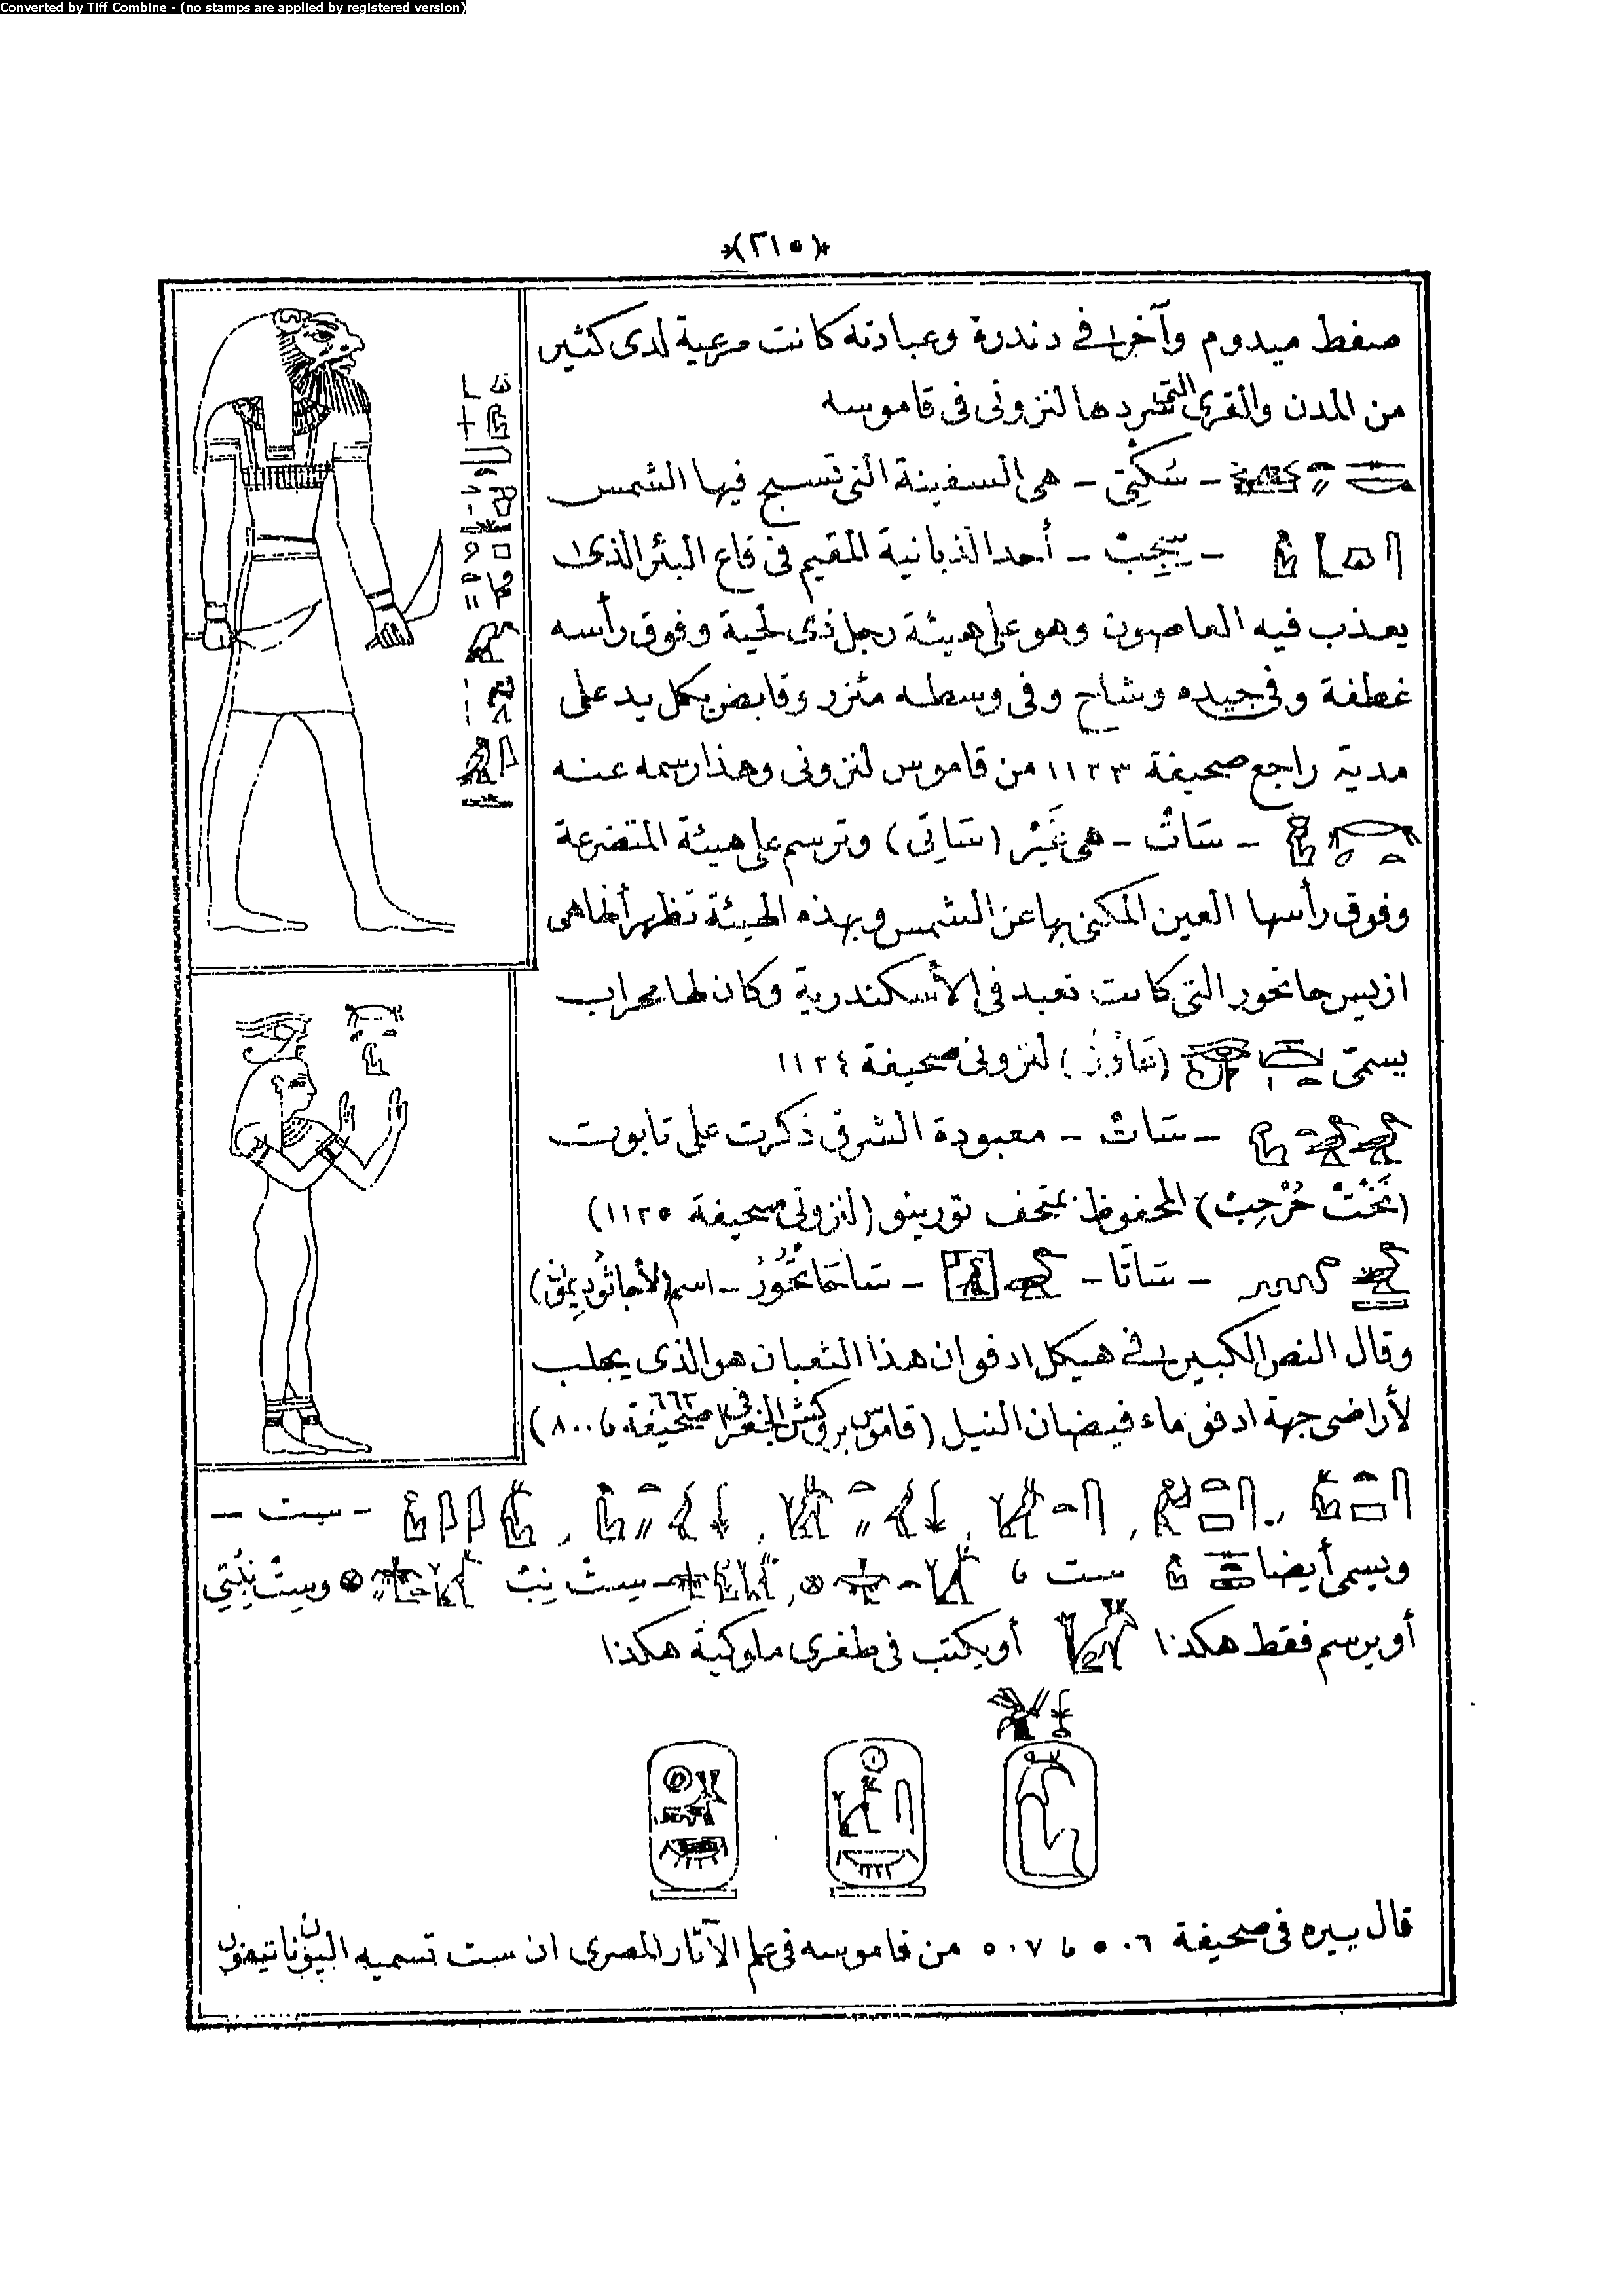 Converted by Tiff Combine - (no stamps are applied by registered version)
*(٢١٥)*
صفط ميدوم وآخر فى دندرة وعبادته كانت مرعية لدى كثير
من المدن والقرى التى سردها لنزونى فى قاموسه
- سَكْتِى - هى السفينة التى تسبح فيها الشمس
- أحد الزبانية المقيم فى قاع البئر الذى
يعذب فيه العاصون وهو على هيئة رجل ذى لحية وفوق رأسه
غطفة وفى جيده وشاح وفى وسطه مئزر وقابض بكل يد على
مدية راجع صحيفة ١١٢٣ من قاموس لنزونى وهذا رسمه عنه
- سَاتْ - هى غَيْر (سَاتِى) وترسم على هيئة المتضرعة
وفوق رأسها العين المكنى بها عن الشمس وبهذه الهيئة تظهر أنها هى
ازيس حاتحور التى كانت تعبد فى الأسكندرية وكان لها محراب
يسمّى لنزونى صحيفة ١١٢٤
- سَاتْ - معبودة الشرق ذكرت على تابوت
(نَخْتْ حُرْحِبْ) المحفوظ بمتحف تورينو (لنزونى صحيفة ١١٢٥)
- سَاتَا - - سَاتحَاتْحُورْ - اسم لأجاثوديمون)
وقال النص الكبير فى هيكل ادفو ان هذا الثعبان هو الذى يجلب
لأراضى جهة ادفو ماء فيضان النيل (قاموس بروكش الجغرافى صحيفة ٦٦٢ ، ٨٠٠)
- ست -
ويسمى أيضا ست ، - ست نبت وست نبتى
أو يرسم فقط هكذا أو يكتب فى طغرى ملوكية هكذا
قال بييره فى صحيفة ٥٠٦ ، ٥٠٧ من قاموسه فى علم الآثار المصرى ان ست تسميه اليونان تيفون